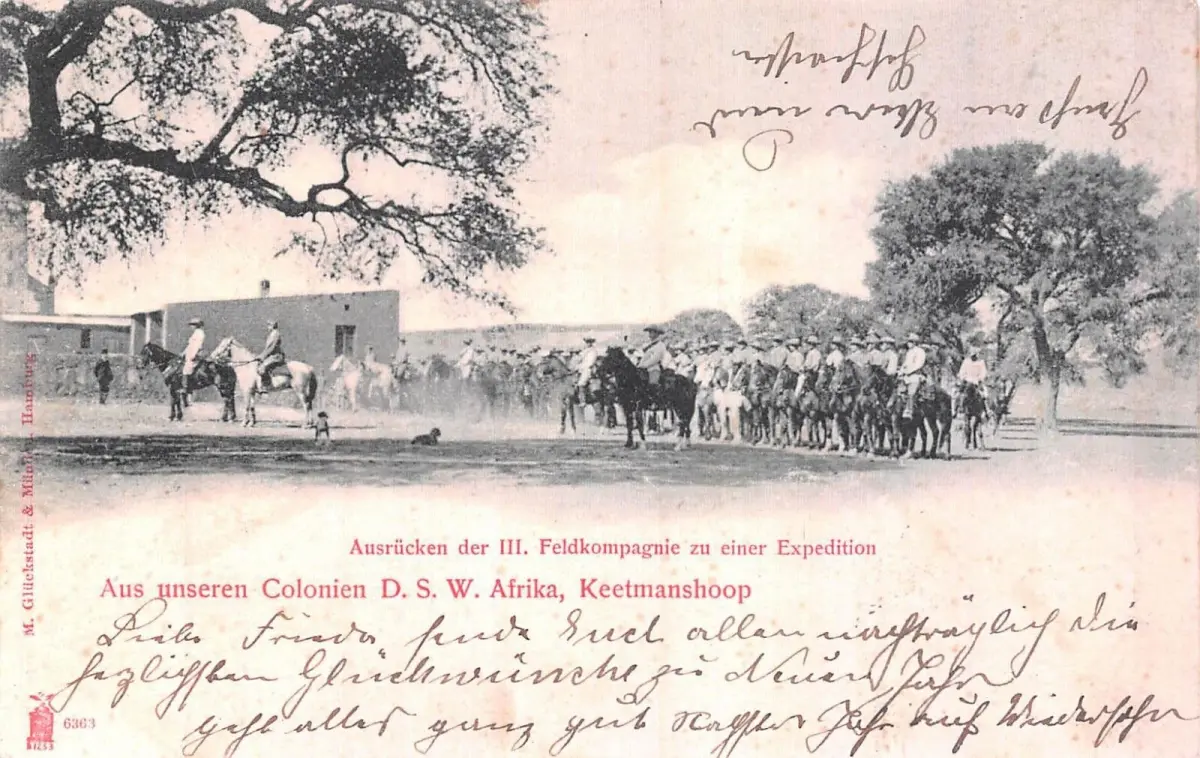 Gruß an
Ausrücken der III. Feldkompagnie zu einer Expedition
Aus unseren Colonien D. S. W. Afrika, Keetmanshoop
M. Glückstadt & Münden, Hamburg
Liebe Frieda sende Euch allen nachträglich die
herzlichsten Glückwünsche zu Neuen Jahr
geht alles ganz gut Nächstes Jahr auf Wiedersehn
6363